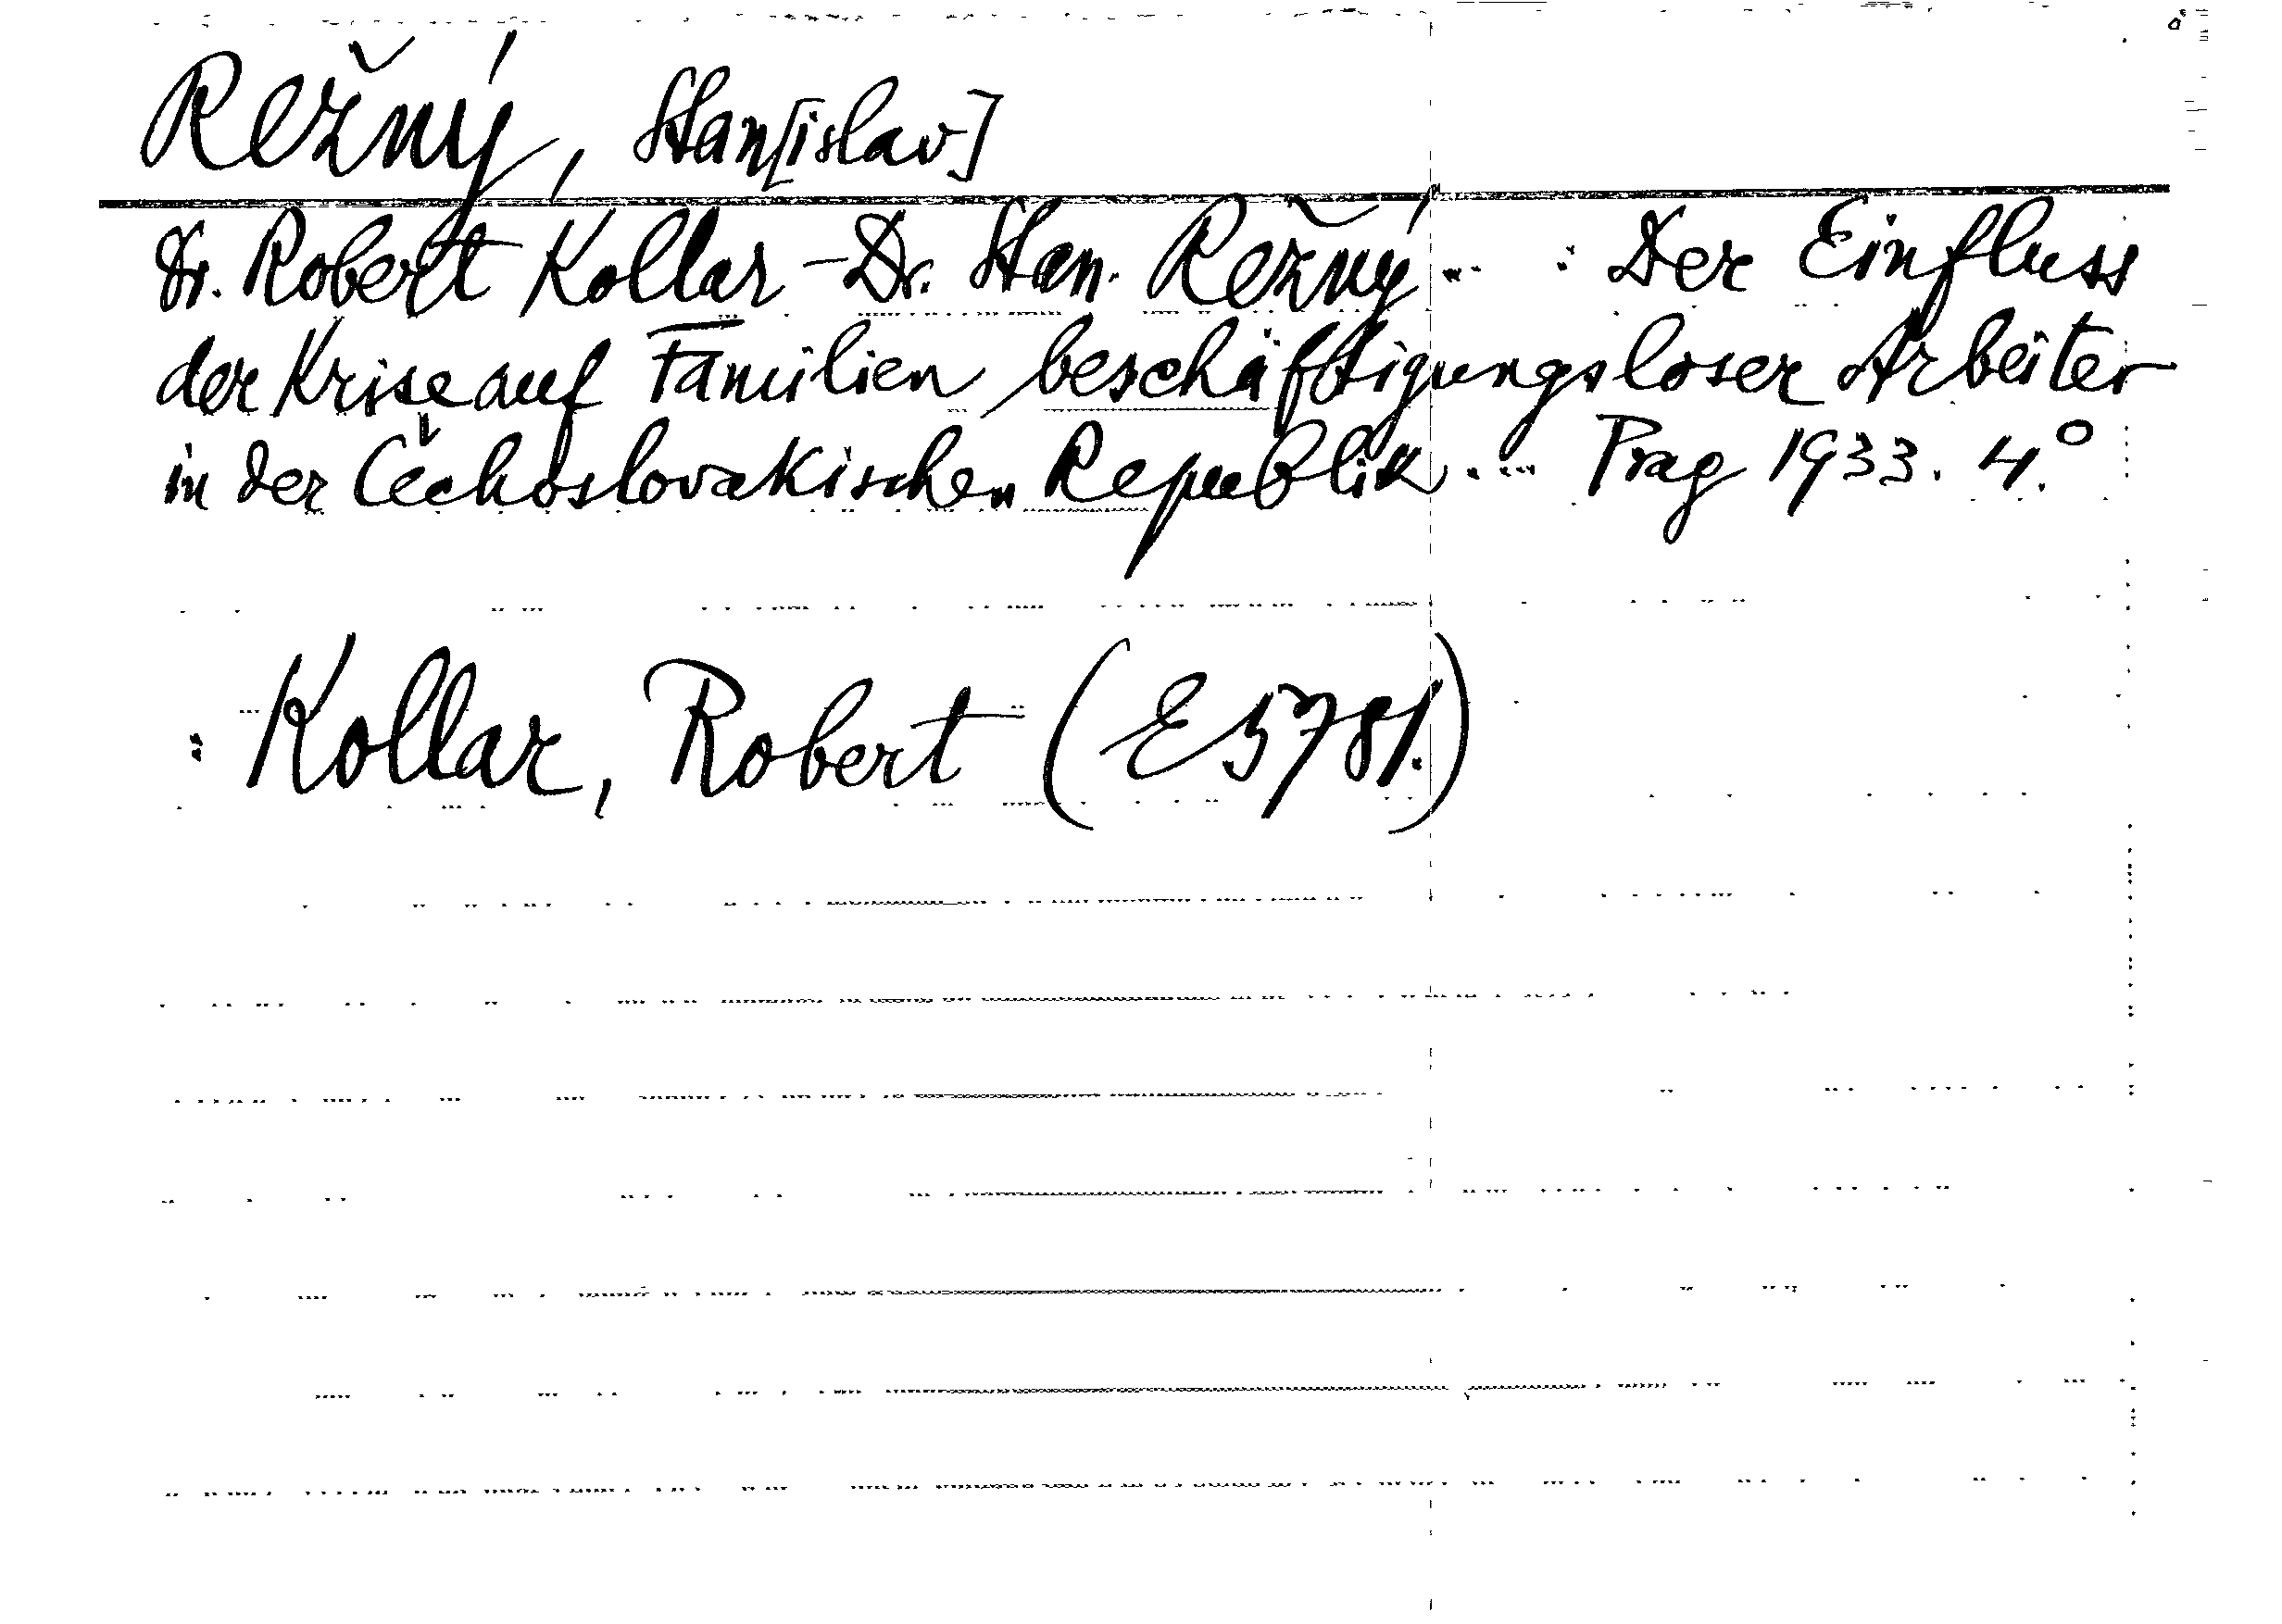 Režný, Stan[islav]
Dr. Robert Kollar - Dr. Stan. Režný ... : Der Einfluss
der Krise auf Familien beschäftigungsloser Arbeiter
in der Čechoslovakischen Republik. ... Prag 1933. 4.°
: Kollar, Robert (E 5781.)